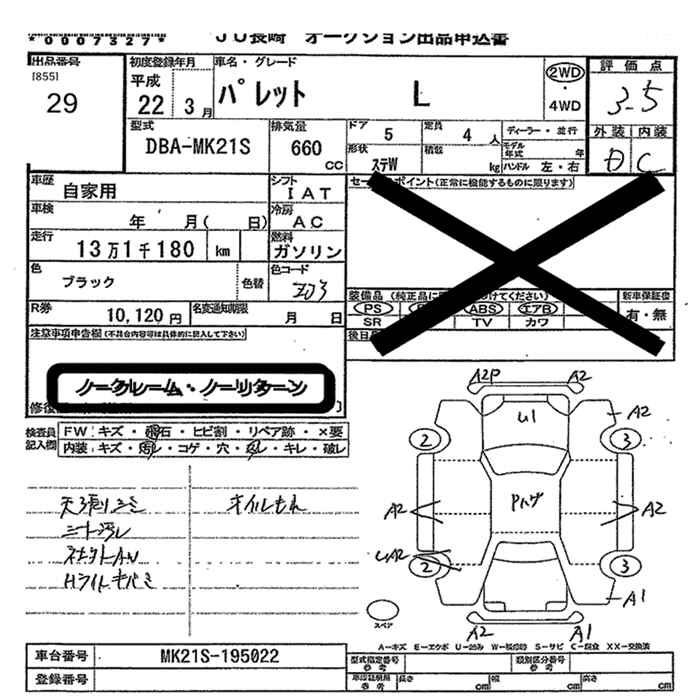 *0007327*
JU長崎 オークション出品申込書
出品番号
[855]
29
初度登録年月
平成
22年3月
車名・グレード
パレット L
2WD
・
4WD
評価点
3.5
外装 内装
D C
型式
DBA-MK21S
排気量
660
CC
ドア
5
定員
4 人
形状
ステW
積数
kg
ディーラー・並行
モデル年式 年
ハンドル 左・右
車歴
自家用
シフト
IAT
車検
年 月( 日)
冷房
AC
走行
13万1千180 km
燃料
ガソリン
色
ブラック
色替
色コード
ZJ3
R券
10,120円
名変通知期限
月 日
セールスポイント(正常に機能するものに限ります)
装備品
PS
ABS
エアB
SR
TV
カワ
新車保証書
有・無
注意事項申告欄(不具合内容等は具体的に記入して下さい)
ノークレーム・ノーリターン
検査員
記入欄
FW:キズ・飛石・ヒビ割・リペア跡・×要
内装:キズ・汚レ・コゲ・穴・返レ・キレ・破レ
天張リユミ
シート汚レ
Hライトキバミ
オイルもれ
A2P
A2
U1
A2
2
3
Pハゲ
A2
A2
UA2
2
3
A1
A2
A1
スペア
A-キズ E-エクボ U-凹み W-板修跡 S-サビ C-腐食 XX-交換済
車台番号
MK21S-195022
登録番号
型式指定番号
参考
類別区分番号
参考
車検証積用
参考
長さ cm
幅 cm
高さ cm